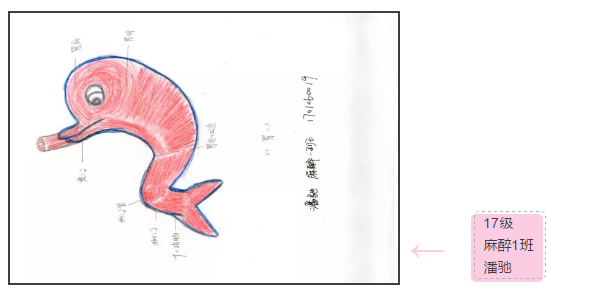 胃底
胃体
贲门
幽门管
幽门
十二指肠
胃
麻醉一班 潘驰
1701060019
17级
麻醉1班
潘驰